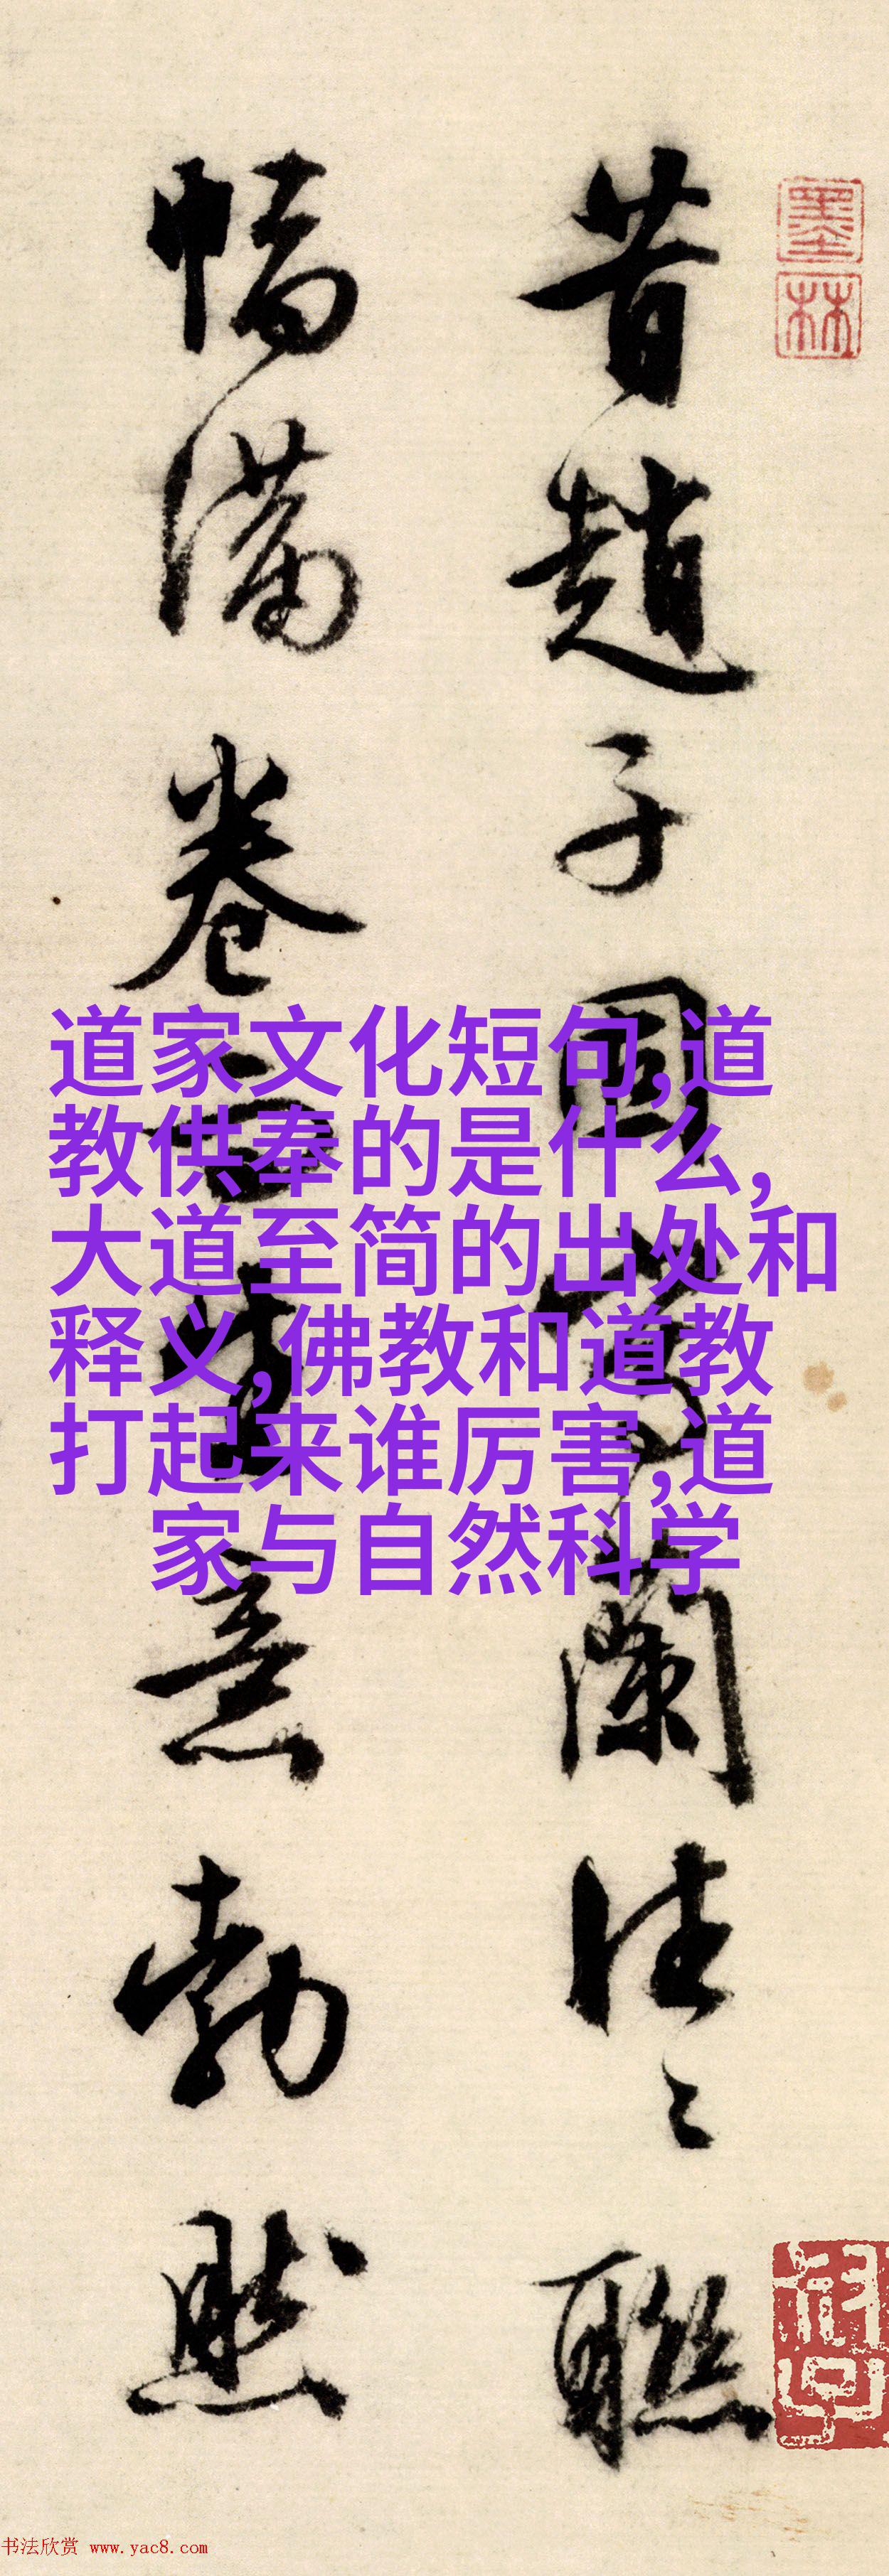 昔趙子固寫蘭往〻聯
幅滿卷而生意勃然
墨林
道家文化短句,道
教供奉的是什么,
大道至简的出处和
释义,佛教和道教
打起来谁厉害,道
家与自然科学
书法欣赏 www.yac8.com